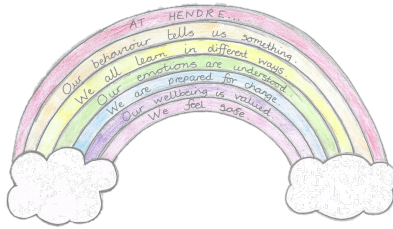 AT HENDRE...
Our behaviour tells us something.
We all learn in different ways
Our emotions are understood
We are prepared for change
Our wellbeing is valued
We feel safe